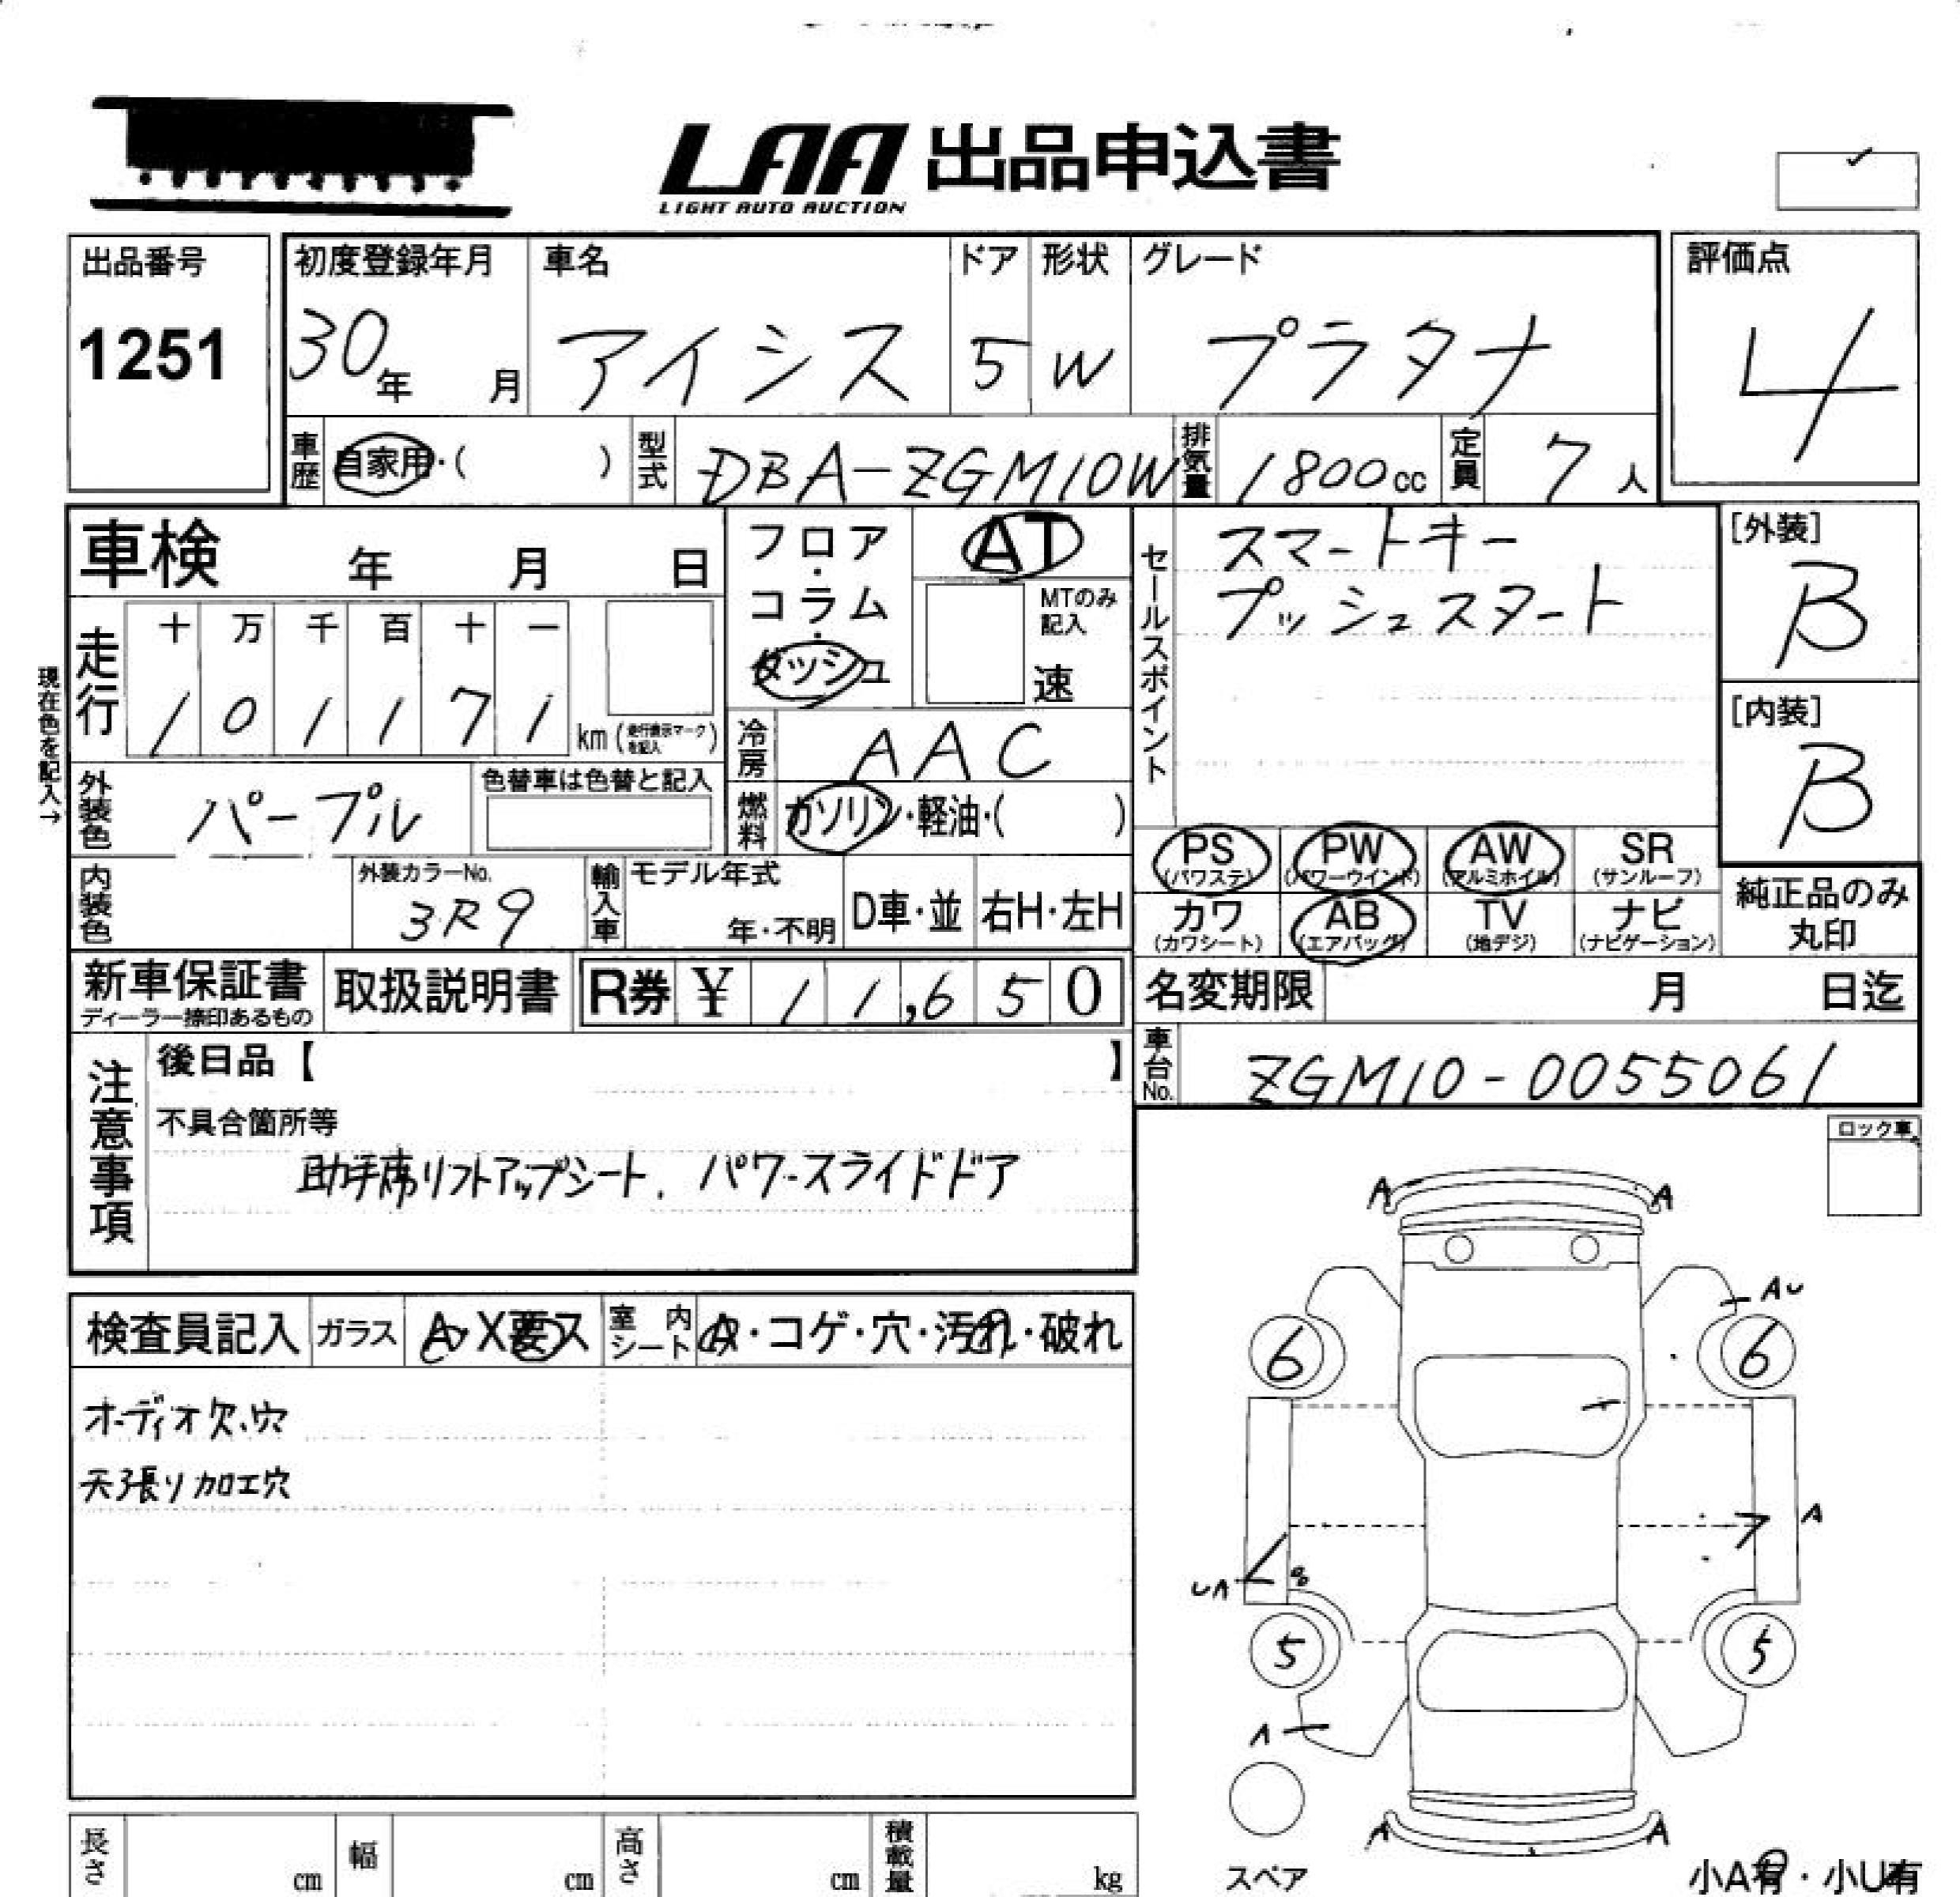 LAA 出品申込書
LIGHT AUTO AUCTION
出品番号
1251
初度登録年月
30年 月
車名
アイシス
ドア
5
形状
W
グレード
プラタナ
評価点
4
車歴
自家用・( )
型式
DBA-ZGM10W
排気量
1800cc
定員
7人
車検 年 月 日
フロア・コラム・ダッシュ
AT
MTのみ記入
速
セールスポイント
スマートキー
プッシュスタート
[外装]
B
[内装]
B
現在色を記入→
走行
十 万 千 百 十 一
1 0 1 1 7 1 km (走行表示マークを記入)
冷房
AAC
外装色
パープル
色替車は色替と記入
燃料
ガソリン・軽油・( )
PS (パワステ)
PW (パワーウインド)
AW (アルミホイル)
SR (サンルーフ)
カワ (カワシート)
AB (エアバッグ)
TV (地デジ)
ナビ (ナビゲーション)
純正品のみ丸印
内装色
外装カラーNo.
3R9
輸入車
モデル年式
年・不明
D車・並
右H・左H
新車保証書
ディーラー捺印あるもの
取扱説明書
R券 ¥ 11,650
名変期限 月 日迄
車台No.
ZGM10-0055061
注意事項
後日品【 】
不具合箇所等
助手席リフトアップシート、パワースライドドア
ロック車
検査員記入
ガラス
A・X要ス
室内シート
A・コゲ・穴・汚れ・破れ
オーディオ欠、穴
天張り加工穴
A A
AU
6 6
A
UA
8
5 5
A
A A
スペア
小A有・小U有
長さ cm
幅 cm
高さ cm
積載量 kg